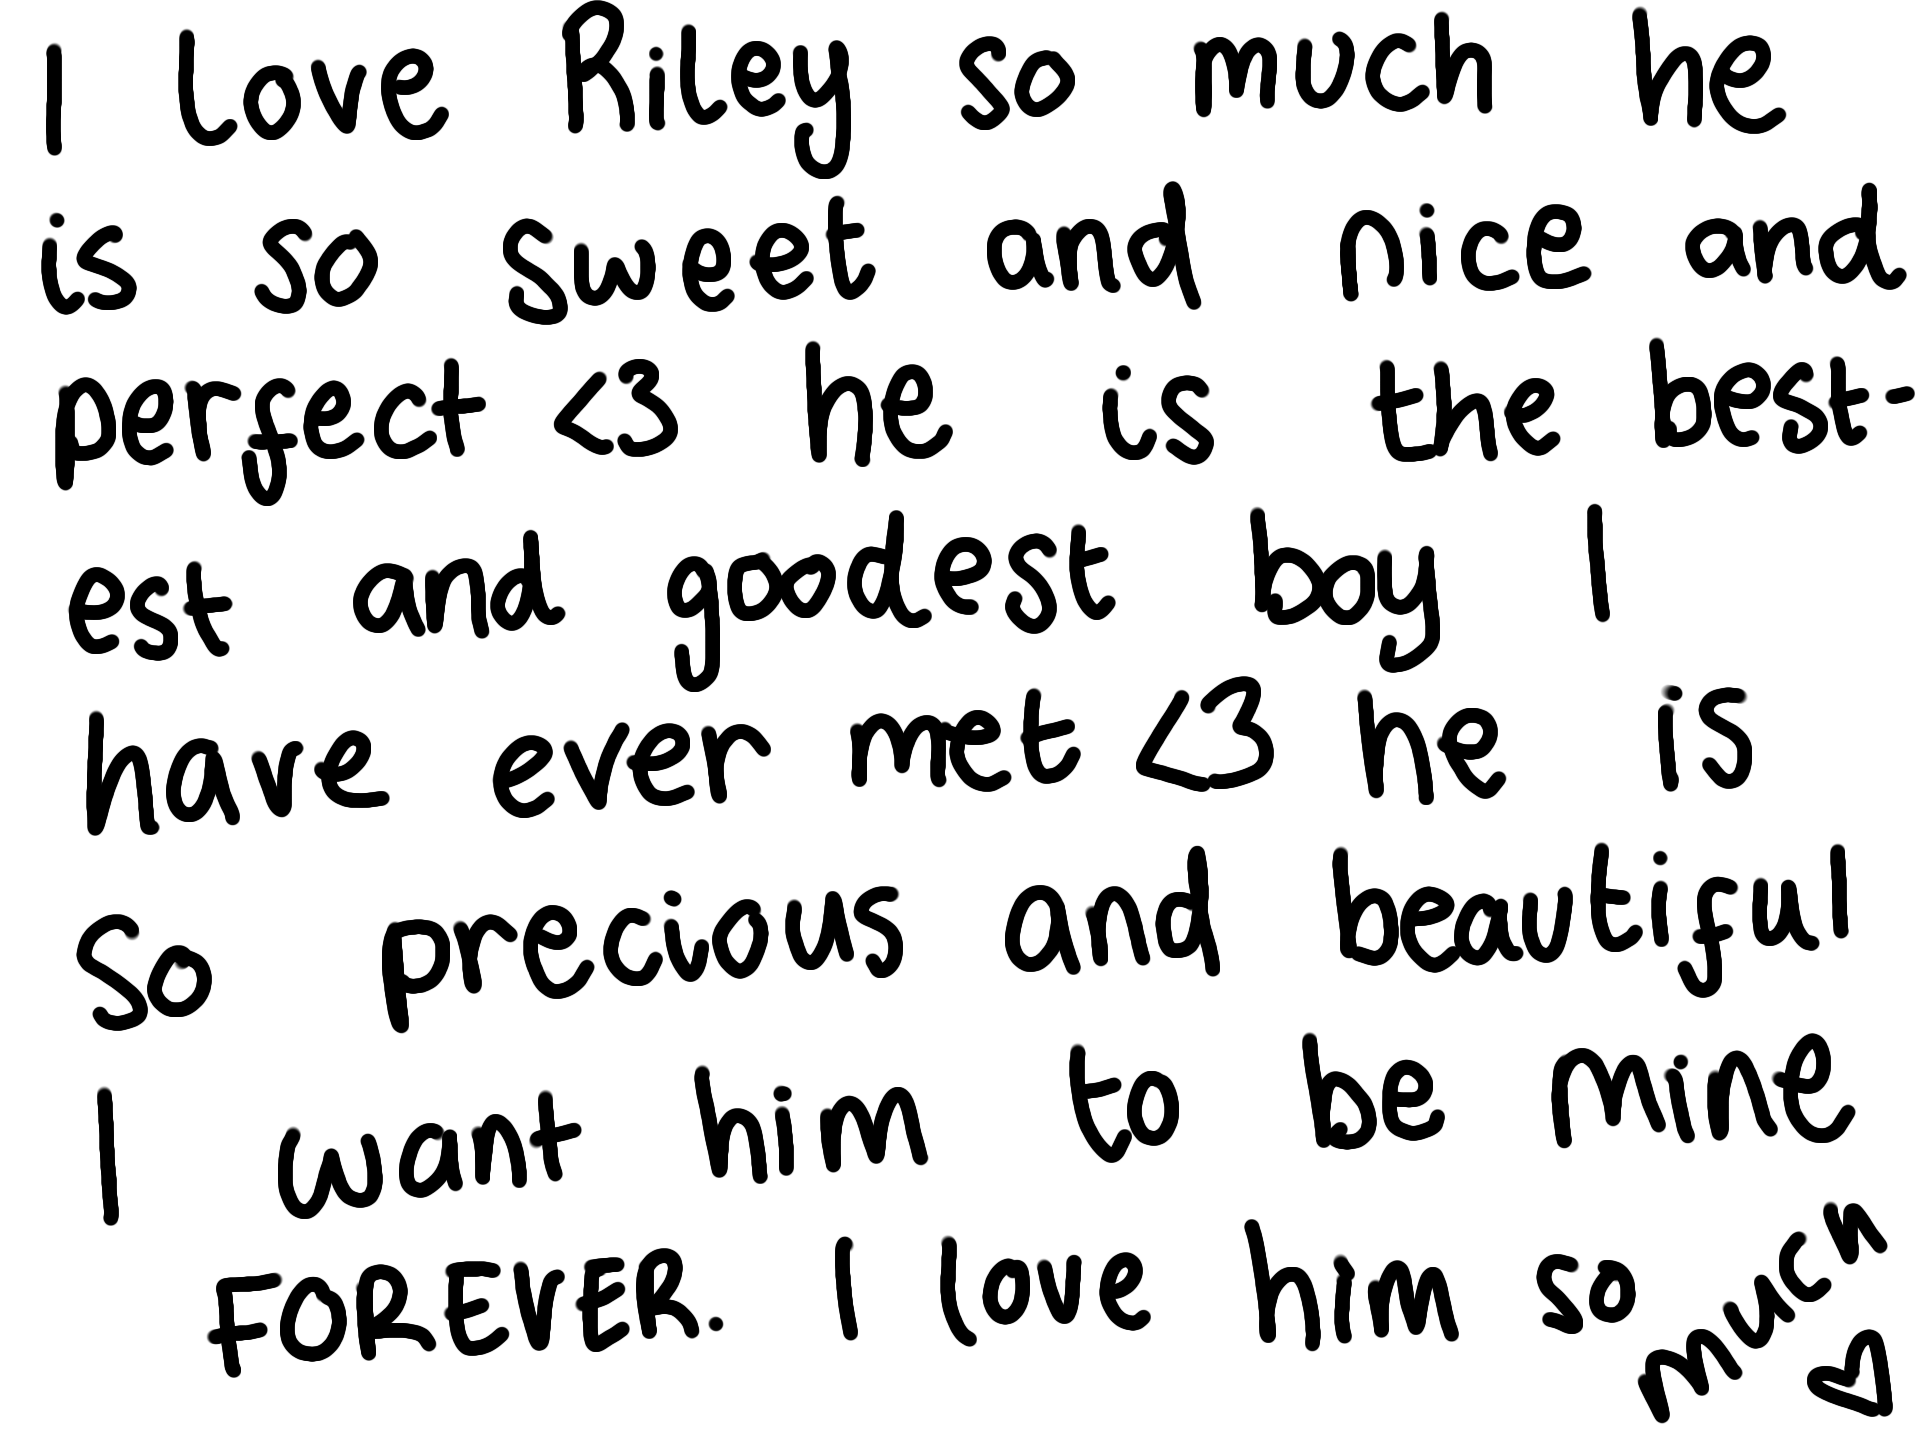 I love Riley so much he
is so sweet and nice and
perfect <3 he is the best-
est and goodest boy I
have ever met <3 he is
so precious and beautiful
I want him to be mine
FOREVER. I love him so much ♡